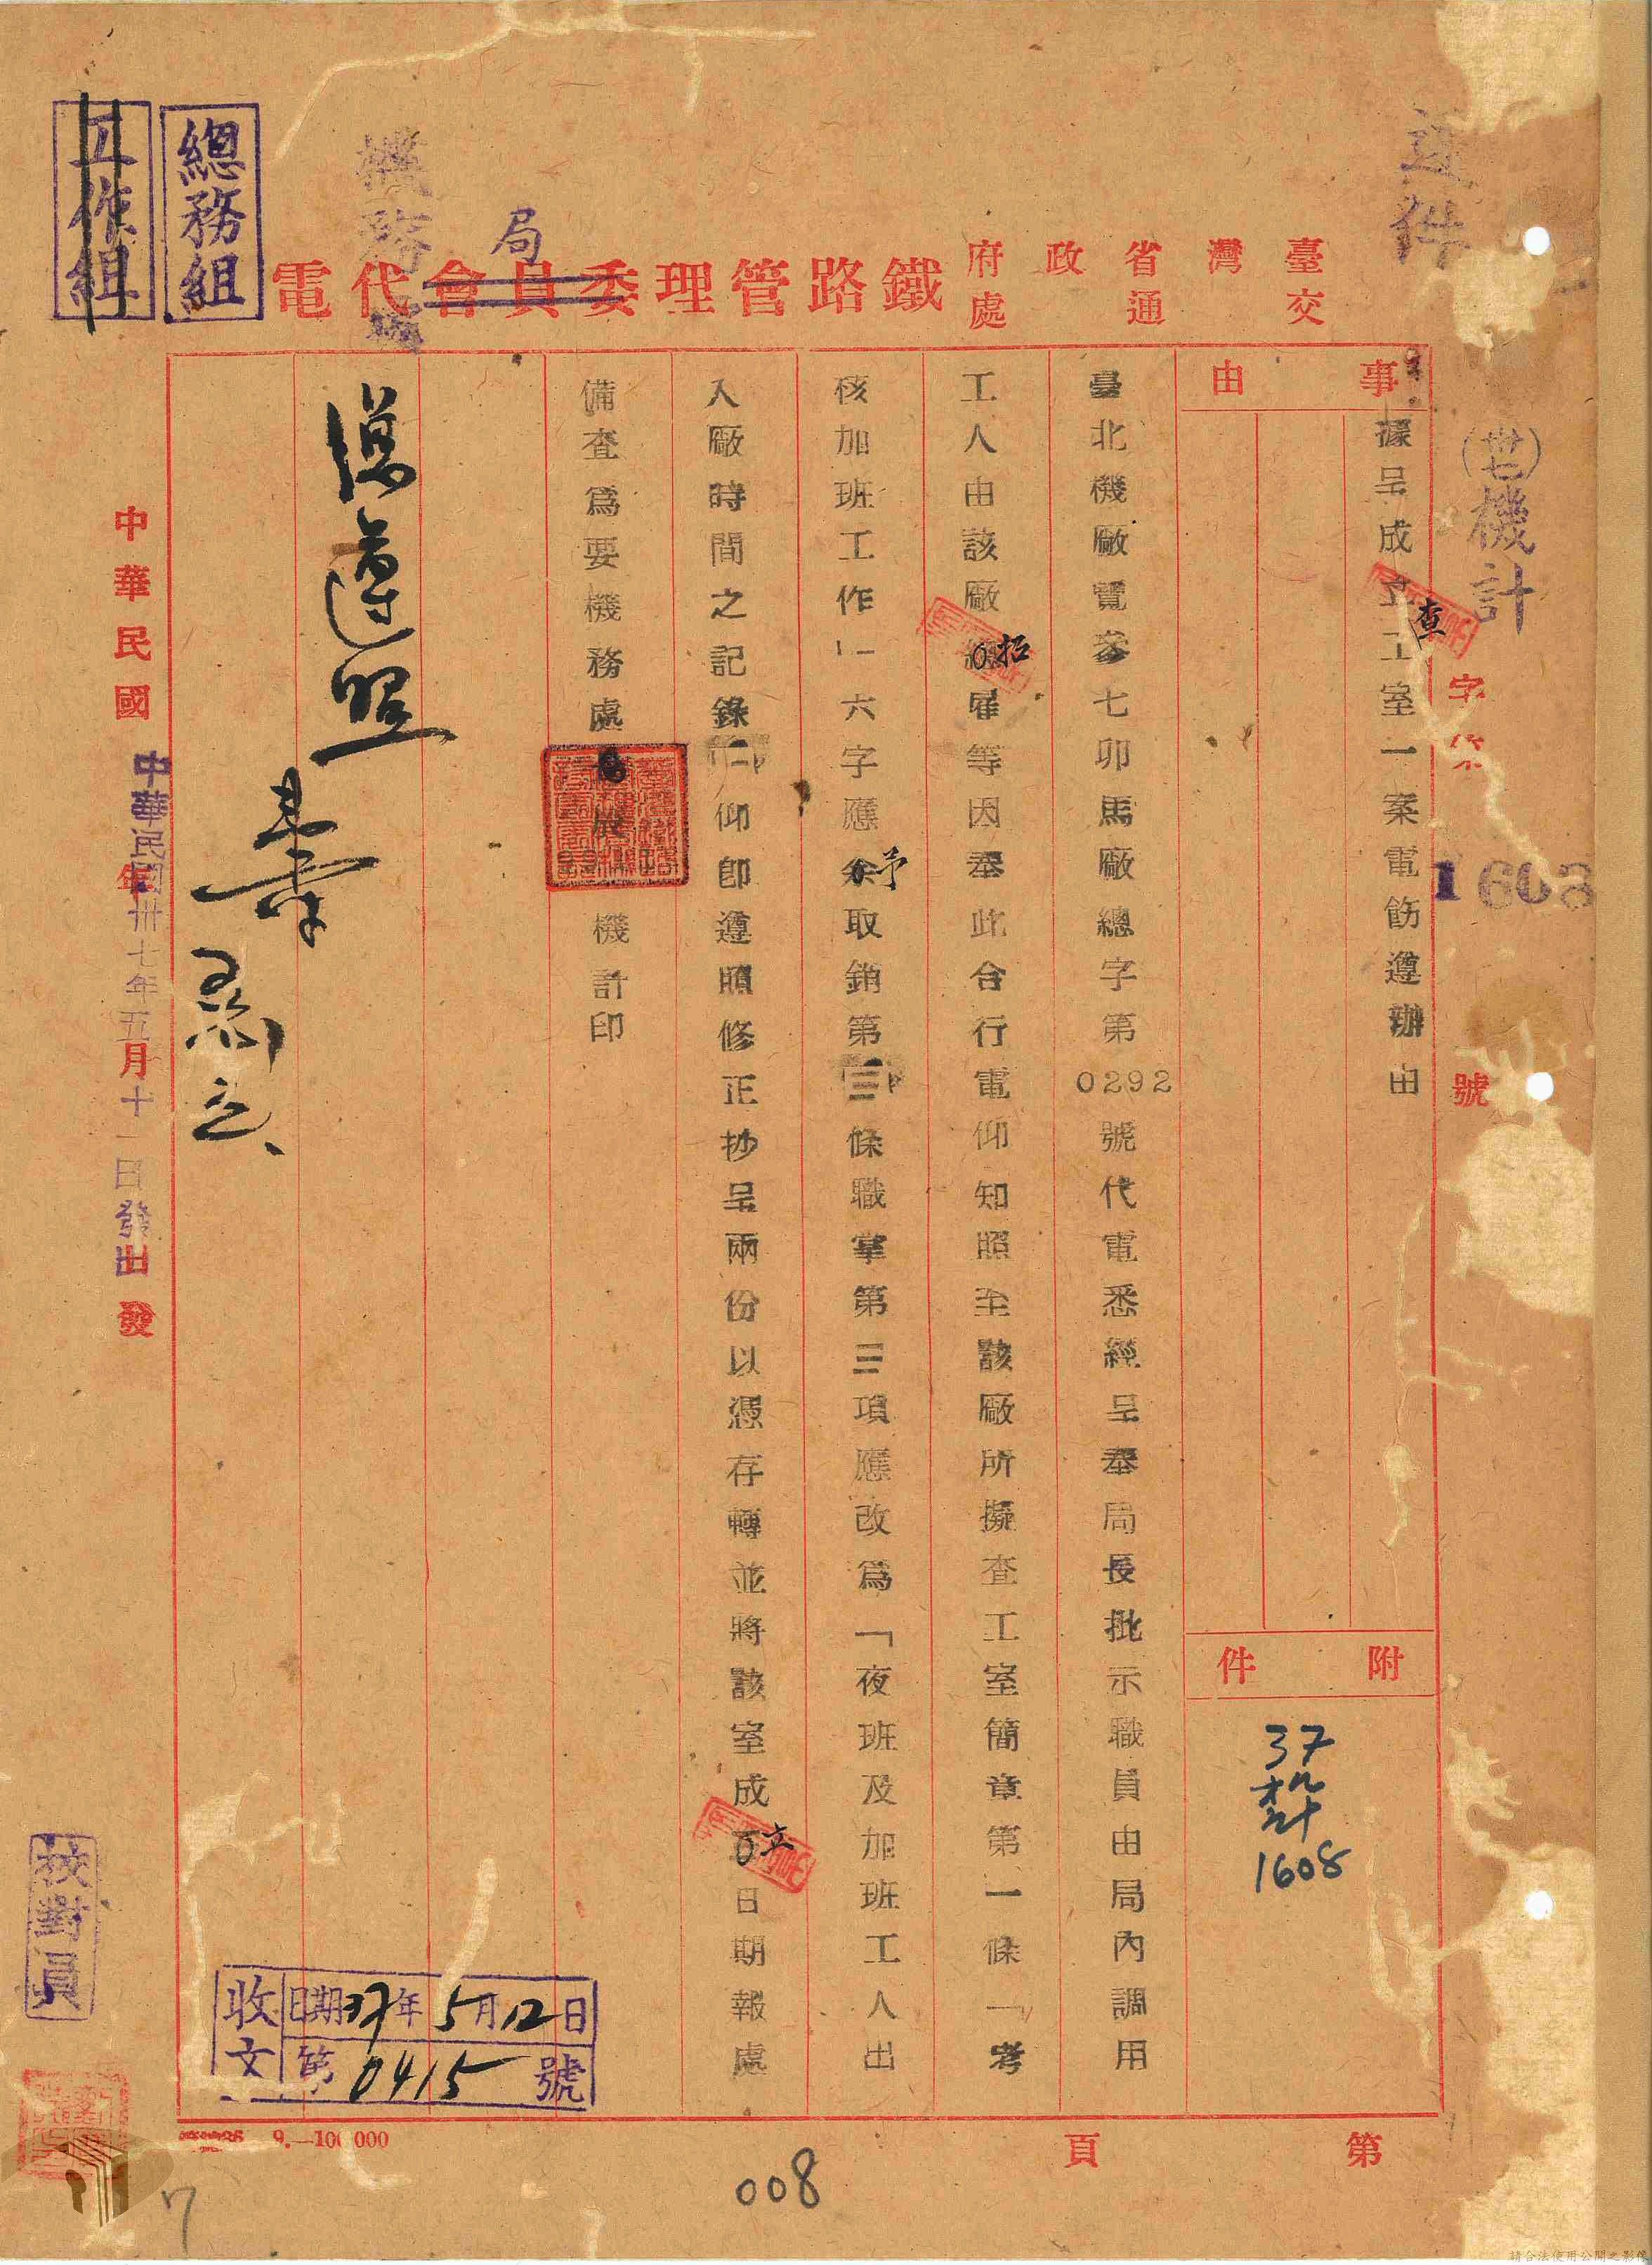 速件
臺灣省政府
交通處
鐵路管理委員會代電
局
機務處
總務組
工作組
(卅七)機計
字第
1608
號
事由
據呈成立查工室一案電飭遵辦由
附件
37
機計
1608
臺北機廠覽叄七卯馬廠總字第0292號代電悉經呈奉局長批示職員由局內調用
工人由該廠招雇等因奉此合行電仰知照至該廠所擬查工室簡章第一條「考
核加班工作」六字應予取銷第三條職掌第三項應改爲「夜班及加班工人出
入廠時間之記錄」仰即遵照修正抄呈兩份以憑存轉並將該室成立日期報處
備查爲要機務處
機計印
遵照
中華民國 年 月 日 發
中華民國卅七年五月十一日發出
校對員
收文
日期37年5月12日
第0415號
9.—100 000
第 頁
008
7
請合法使用公開之影像